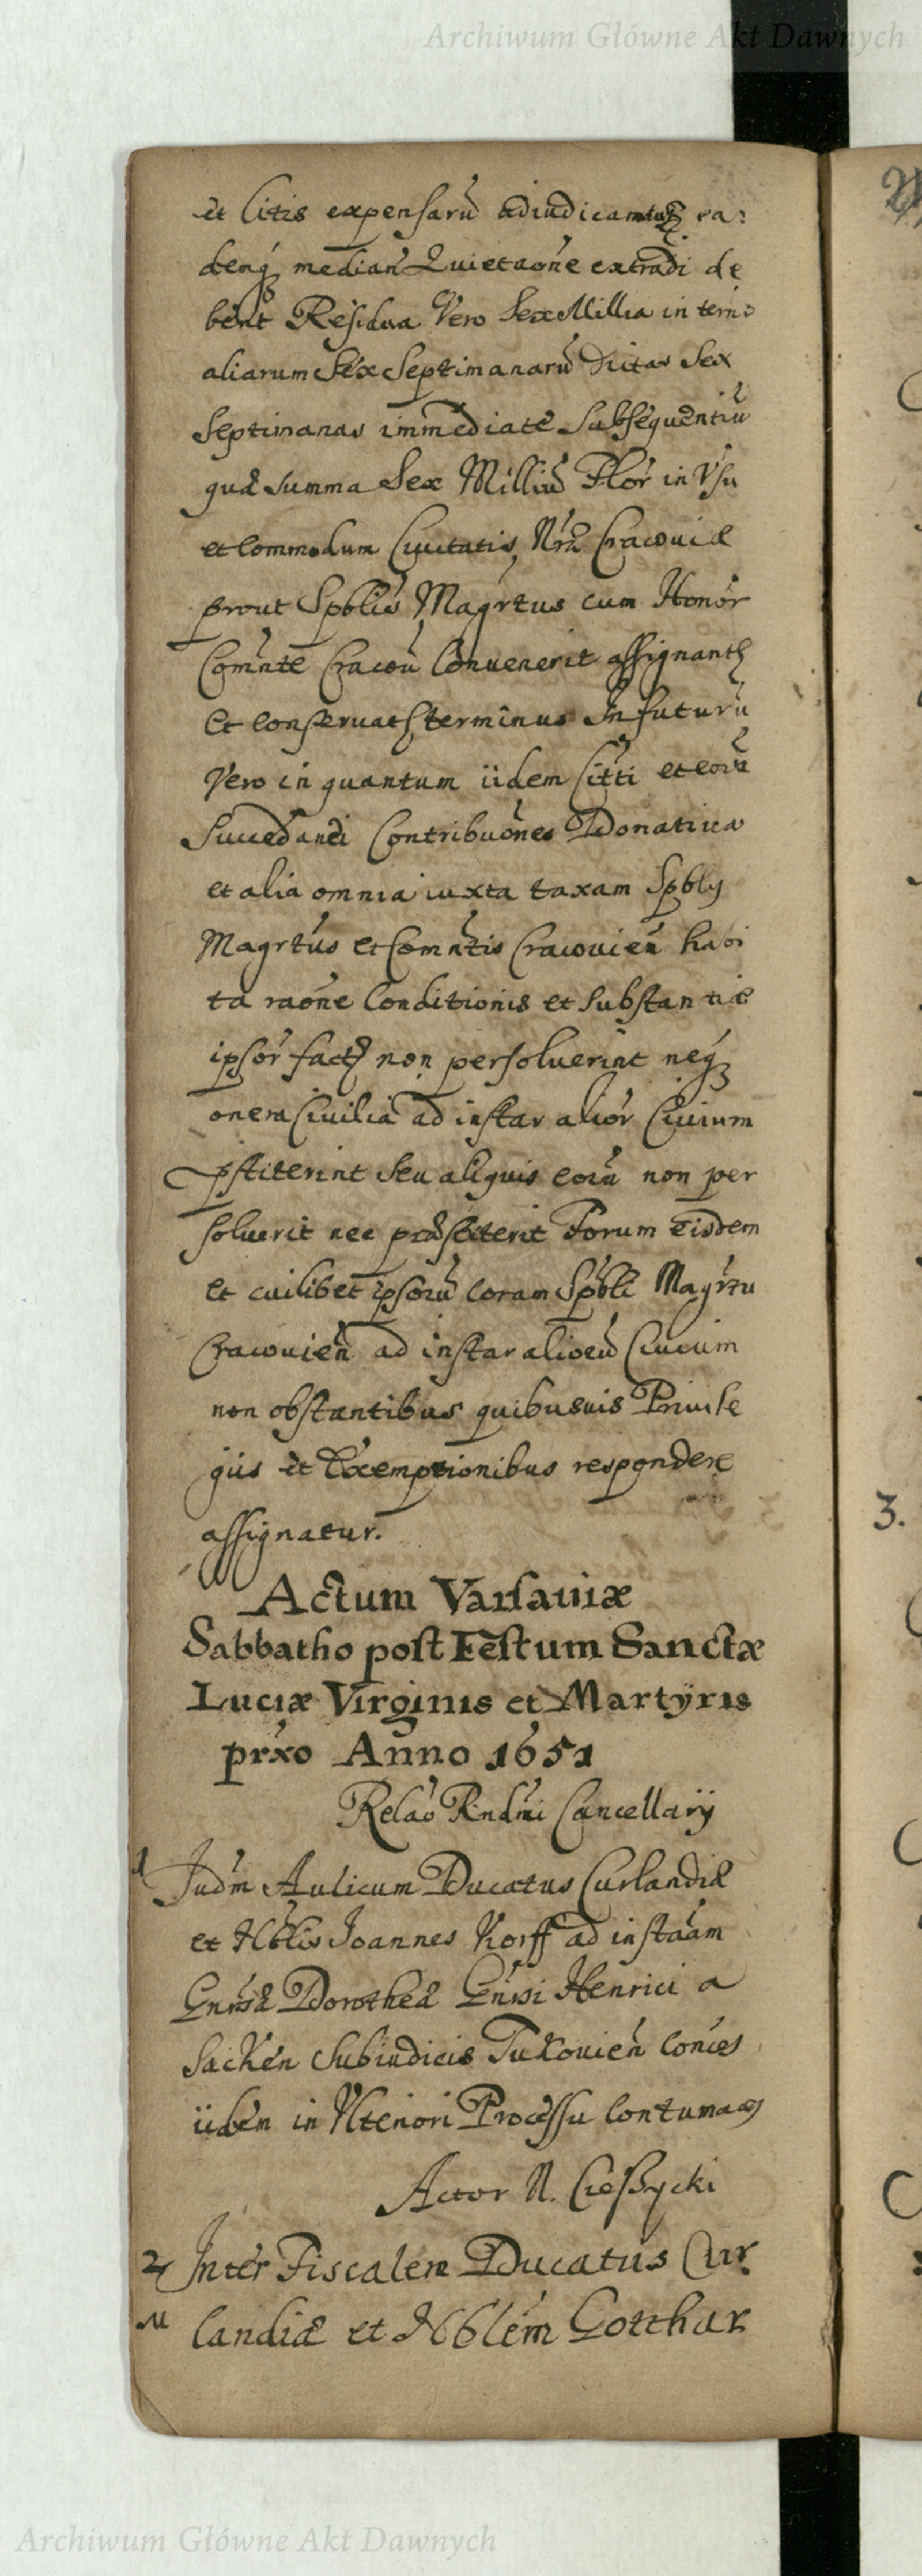 Archiwum Główne Akt Dawnych
et litis expensarũ adiudicantur ea:
demq; median̄ Quietaõne extradi de
bent Residua Vero Sex Millia in termi
aliarum Sex Septimanarũ dictas Sex
Septimanas immediate Subsequentiũ
quæ summa Sex Milliũ Flor in Vsu
et Commodum Ciuitatis Nr̃æ Cracouiæ
prout Spblis Magr̃tus cum Honor
Com̃nte Cracou Conuenerit assignantʒ
et conseruatʒ terminus In futurũ
Vero in quantum iidem Citti et eorũ
Succedanei Contribuõnes Donatiua
et alia omnia iuxta taxam Spbly
Magrt̃us et Com̃ntis Cracouien̄ habi
ta raõne Conditionis et substantiæ
ipsor̃ factʒ non persoluerint neq;
onera Ciuilia ad instar alior̃ Ciuium
pstiterint seu aliquis eorũ non per
soluerit nec præstiterit Forum eisdem
et cuilibet ipsorũ coram Spbli Magr̃tu
Cracouien̄ ad instar aliorũ Ciuium
non obstantibus quibusuis Priuile
giis et Exemptionibus respondere
assignatur.
Actum Varsauiæ
Sabbatho post Festum Sanctæ
Luciæ Virginis et Martyris
pr̃xo Anno 1651
Relaõ Rndmi Cancellarij
1 Iudm Aulicum Ducatus Curlandiæ
et Nblis Joannes Korff ad instãam
Gnrsæ Dorotheæ Gnrsi Henrici a
Sacken Subiudicis Tukouien̄
iidem in Vlteriori Processu
Actor N. Cieszycki
2 Inter Fiscalem Ducatus Cur
M landiæ et Nblem Gotthar
3.
Archiwum Główne Akt Dawnych